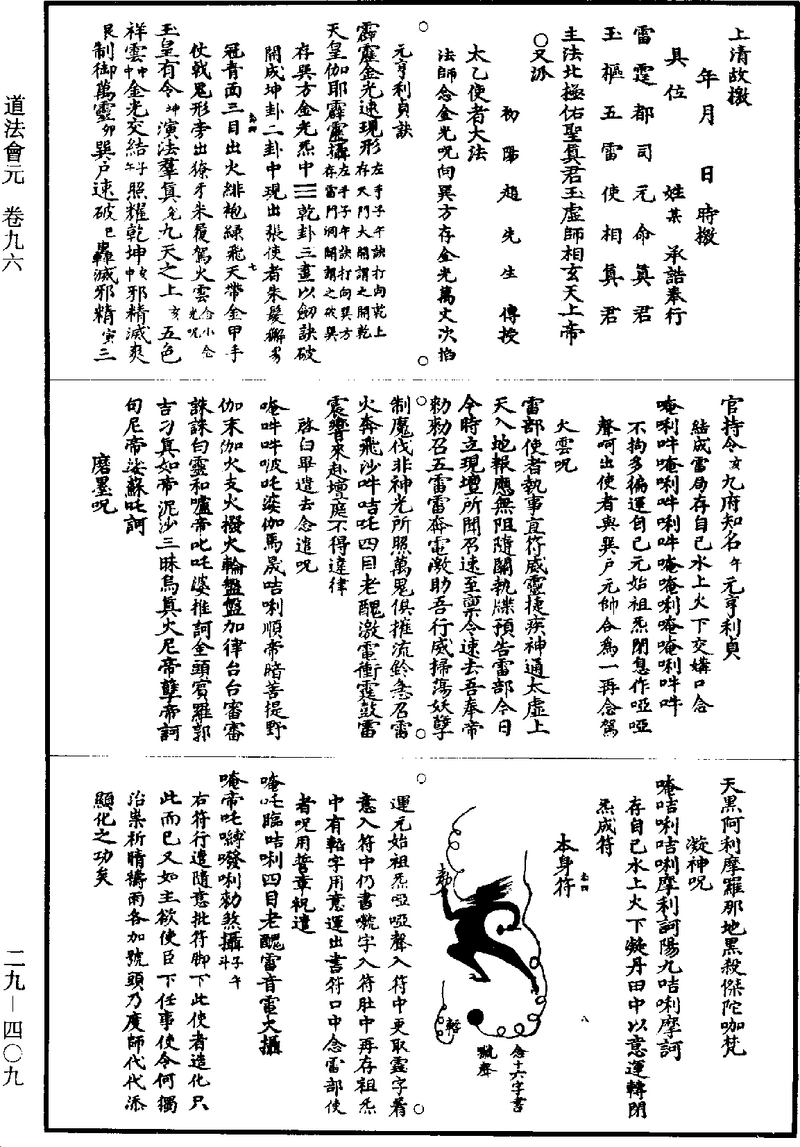 道法會元　卷九六
二九—四〇九
上清故檄
年月　日時檄
具位　姓某承誥奉行
雷霆都司元命真君
玉樞五雷使相真君
主法北極佑聖真君玉虛師相玄天上帝
○又派
初陽趙先生傳授
太乙使者大法
法師念金光呪向巽方存金光萬丈次掐
元亨利貞訣
霹靂金光速現形左手子午訣打向乾上存天門大開謂之開乾
天皇伽耶霹靂攝左手子午訣打向巽方存雷門洞開謂之破巽
存巽方金光炁中☰乾卦三畫以劒訣破
開成坤卦二卦中現出張使者朱髮獬豸
冠青面三目出火緋袍綠飛天帶金甲手
仗戟鬼形旁出獠牙朱履駕火雲合小金光呪念
玉皇有令坤演法羣真兌九天之上亥五色
祥雲中中金光交結子午照耀乾坤中亥邪精滅爽
艮制御萬靈卯巽戶速破巳轟滅邪精寅三
官持令亥九府知名午元亨利貞
結成雷局存自己水上火下交媾口念
唵唎吽唵唎吽唎吽唵唵唎唵唵唎吽吽
不拘多徧運自己元始祖炁閉息作啞啞
聲呵出使者與巽戶元帥合為一再念駕
火雲呪
雷部使者執事直符威靈捷疾神通太虛上
天入地報應無阻隨關執牒預告雷部今日
今時立現壇所聞召速至稟令速去吾奉帝
勑勑召五雷雷奔電激助吾行威掃蕩妖孽
制魔伐非神光所照萬鬼俱摧流鈴急召雷
火奔飛沙吽吉吒四目老醜激電衝霆鼓雷
震響來赴壇庭不得違律
啓白畢遣去念遣呪
唵吽吽㖿吒婆伽馬晟咭唎順帝暗菩提野
伽末伽火支火撥火輪盤盤加律台台審審
誅誅白靈和嚧帝叱吒婆推訶全頭賓羅郭
吉刁真如帝泥沙三昧烏真火尼帝孽帝訶
旬尼帝娑蘇吒訶
磨墨呪
天黑阿利摩羅那地黑殺傑陀咖梵
凝神呪
唵咭唎咭唎摩利訶陽九咭唎摩訶
存自己水上火下凝丹田中以意運轉閉
炁成符
本身符
念十六字書
運元始祖炁啞啞聲入符中更取靈字着
意入符中仍書㘈字入符肚中再存祖炁
中有輅字用意運出書符口中念雷部使
者呪用誓章祝遣
唵吒臨咭唎四目老醜雷音電火攝
唵帝吒嚩發唎勑煞攝子午斗
右符行遣隨意批符脚下此使者造化只
此而已又如主欲使臣下任事使令何獨
治祟祈晴禱雨各加號頭乃度師代代添
顯化之功矣